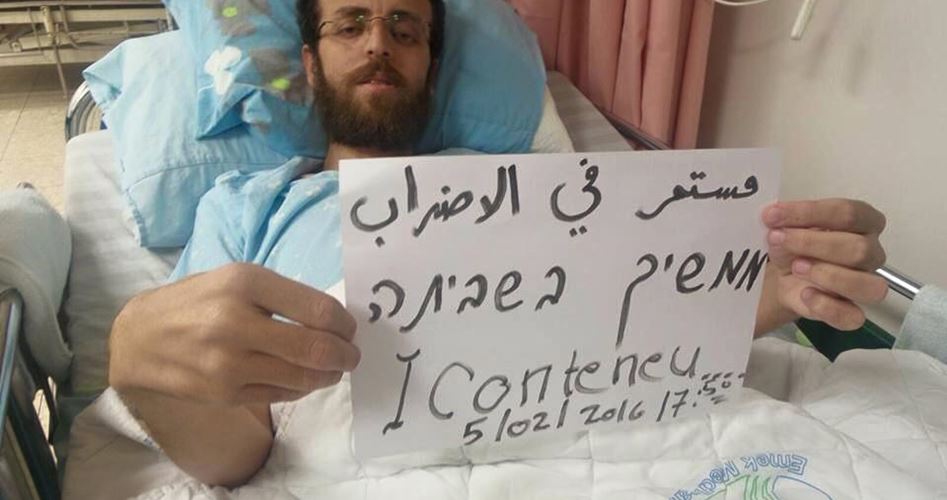 مستمر في الاضراب
ממשיך בשביתה
I Conteneu...
5/02/2016/7:50
Emek Med